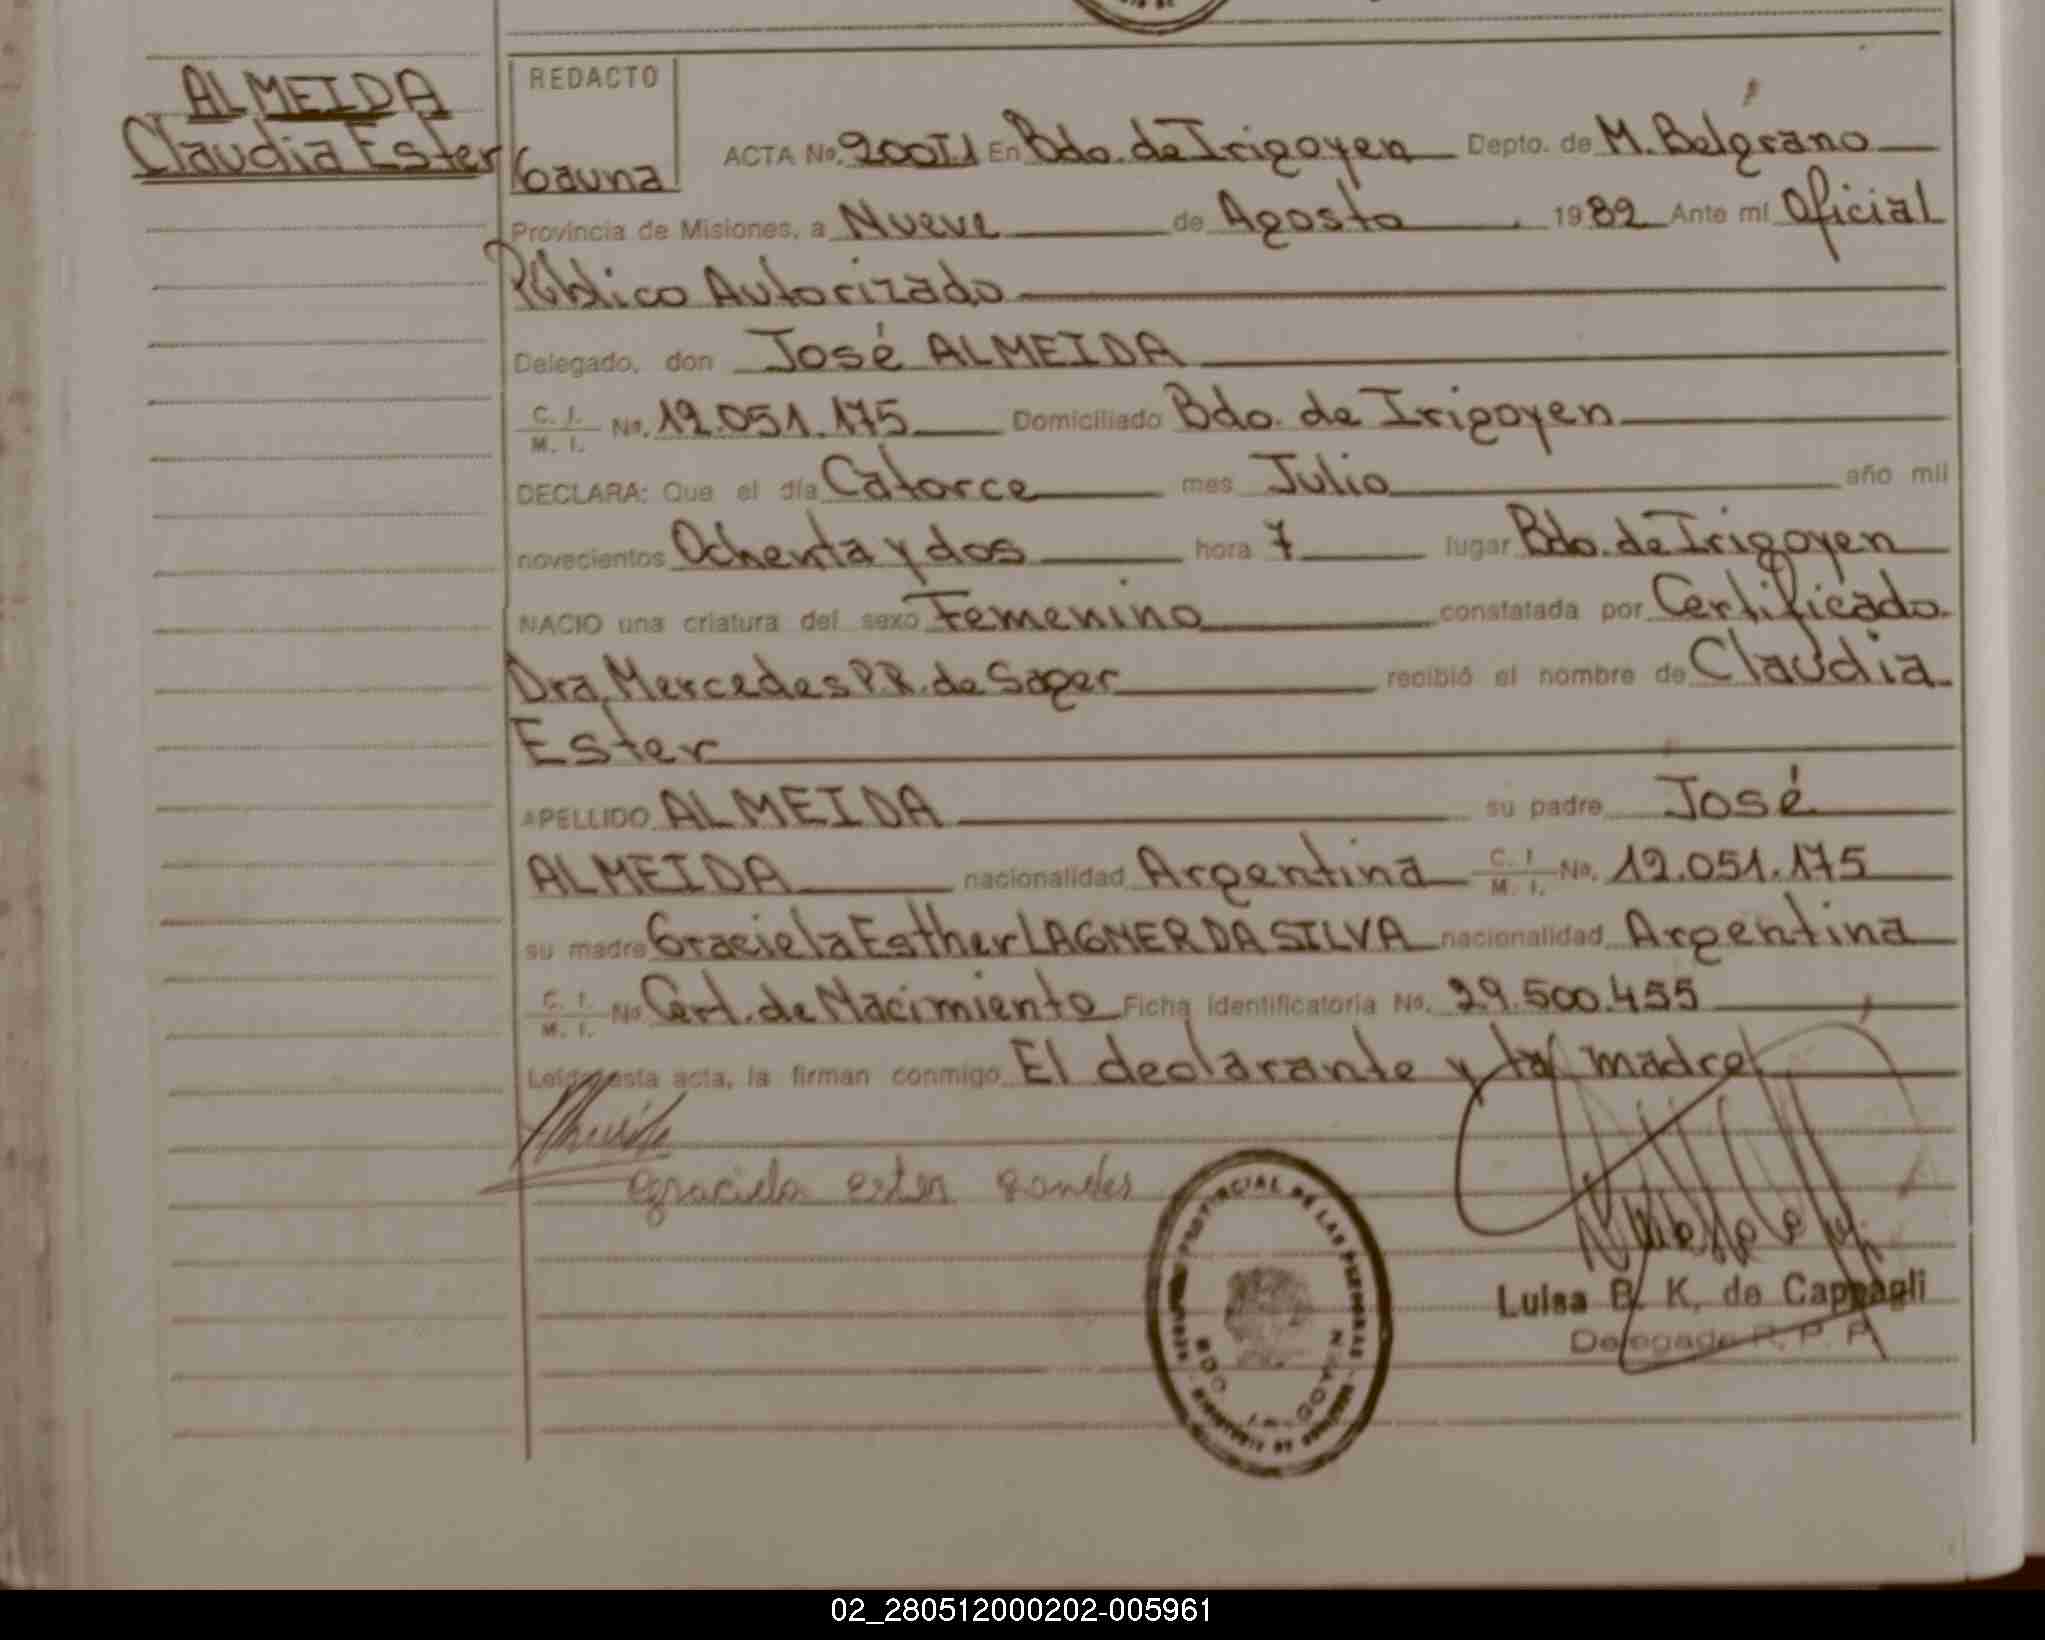 ALMEIDA
Claudia Ester
REDACTO
Gauna
ACTA No. 200TI En Bdo. de Irigoyen Depto. de M. Belgrano
Provincia de Misiones, a Nueve de Agosto 1982 Ante mí Oficial
Público Autorizado
Delegado, don José ALMEIDA
C. I. / M. I. No. 12.051.175 Domiciliado Bdo. de Irigoyen
DECLARA: Que el día Catorce mes Julio año mil
novecientos Ochenta y dos hora 7 lugar Bdo. de Irigoyen
NACIO una criatura del sexo Femenino constatada por Certificado
Dra. Mercedes P.R. de Sager recibió el nombre de Claudia
Ester
APELLIDO ALMEIDA su padre José
ALMEIDA nacionalidad Argentina C. I. / M. I. No. 12.051.175
su madre Graciela Esther LAGNER DA SILVA nacionalidad Argentina
C. I. / M. I. No. Cert. de Nacimiento Ficha identificatoria No. 29.500.455
Leída esta acta, la firman conmigo El declarante y la madre
graciela ester
PROVINCIAL DE LAS PERSONAS
BDO.
Luisa B. K. de Cappagli
Delegada R. P. P.
02_280512000202-005961